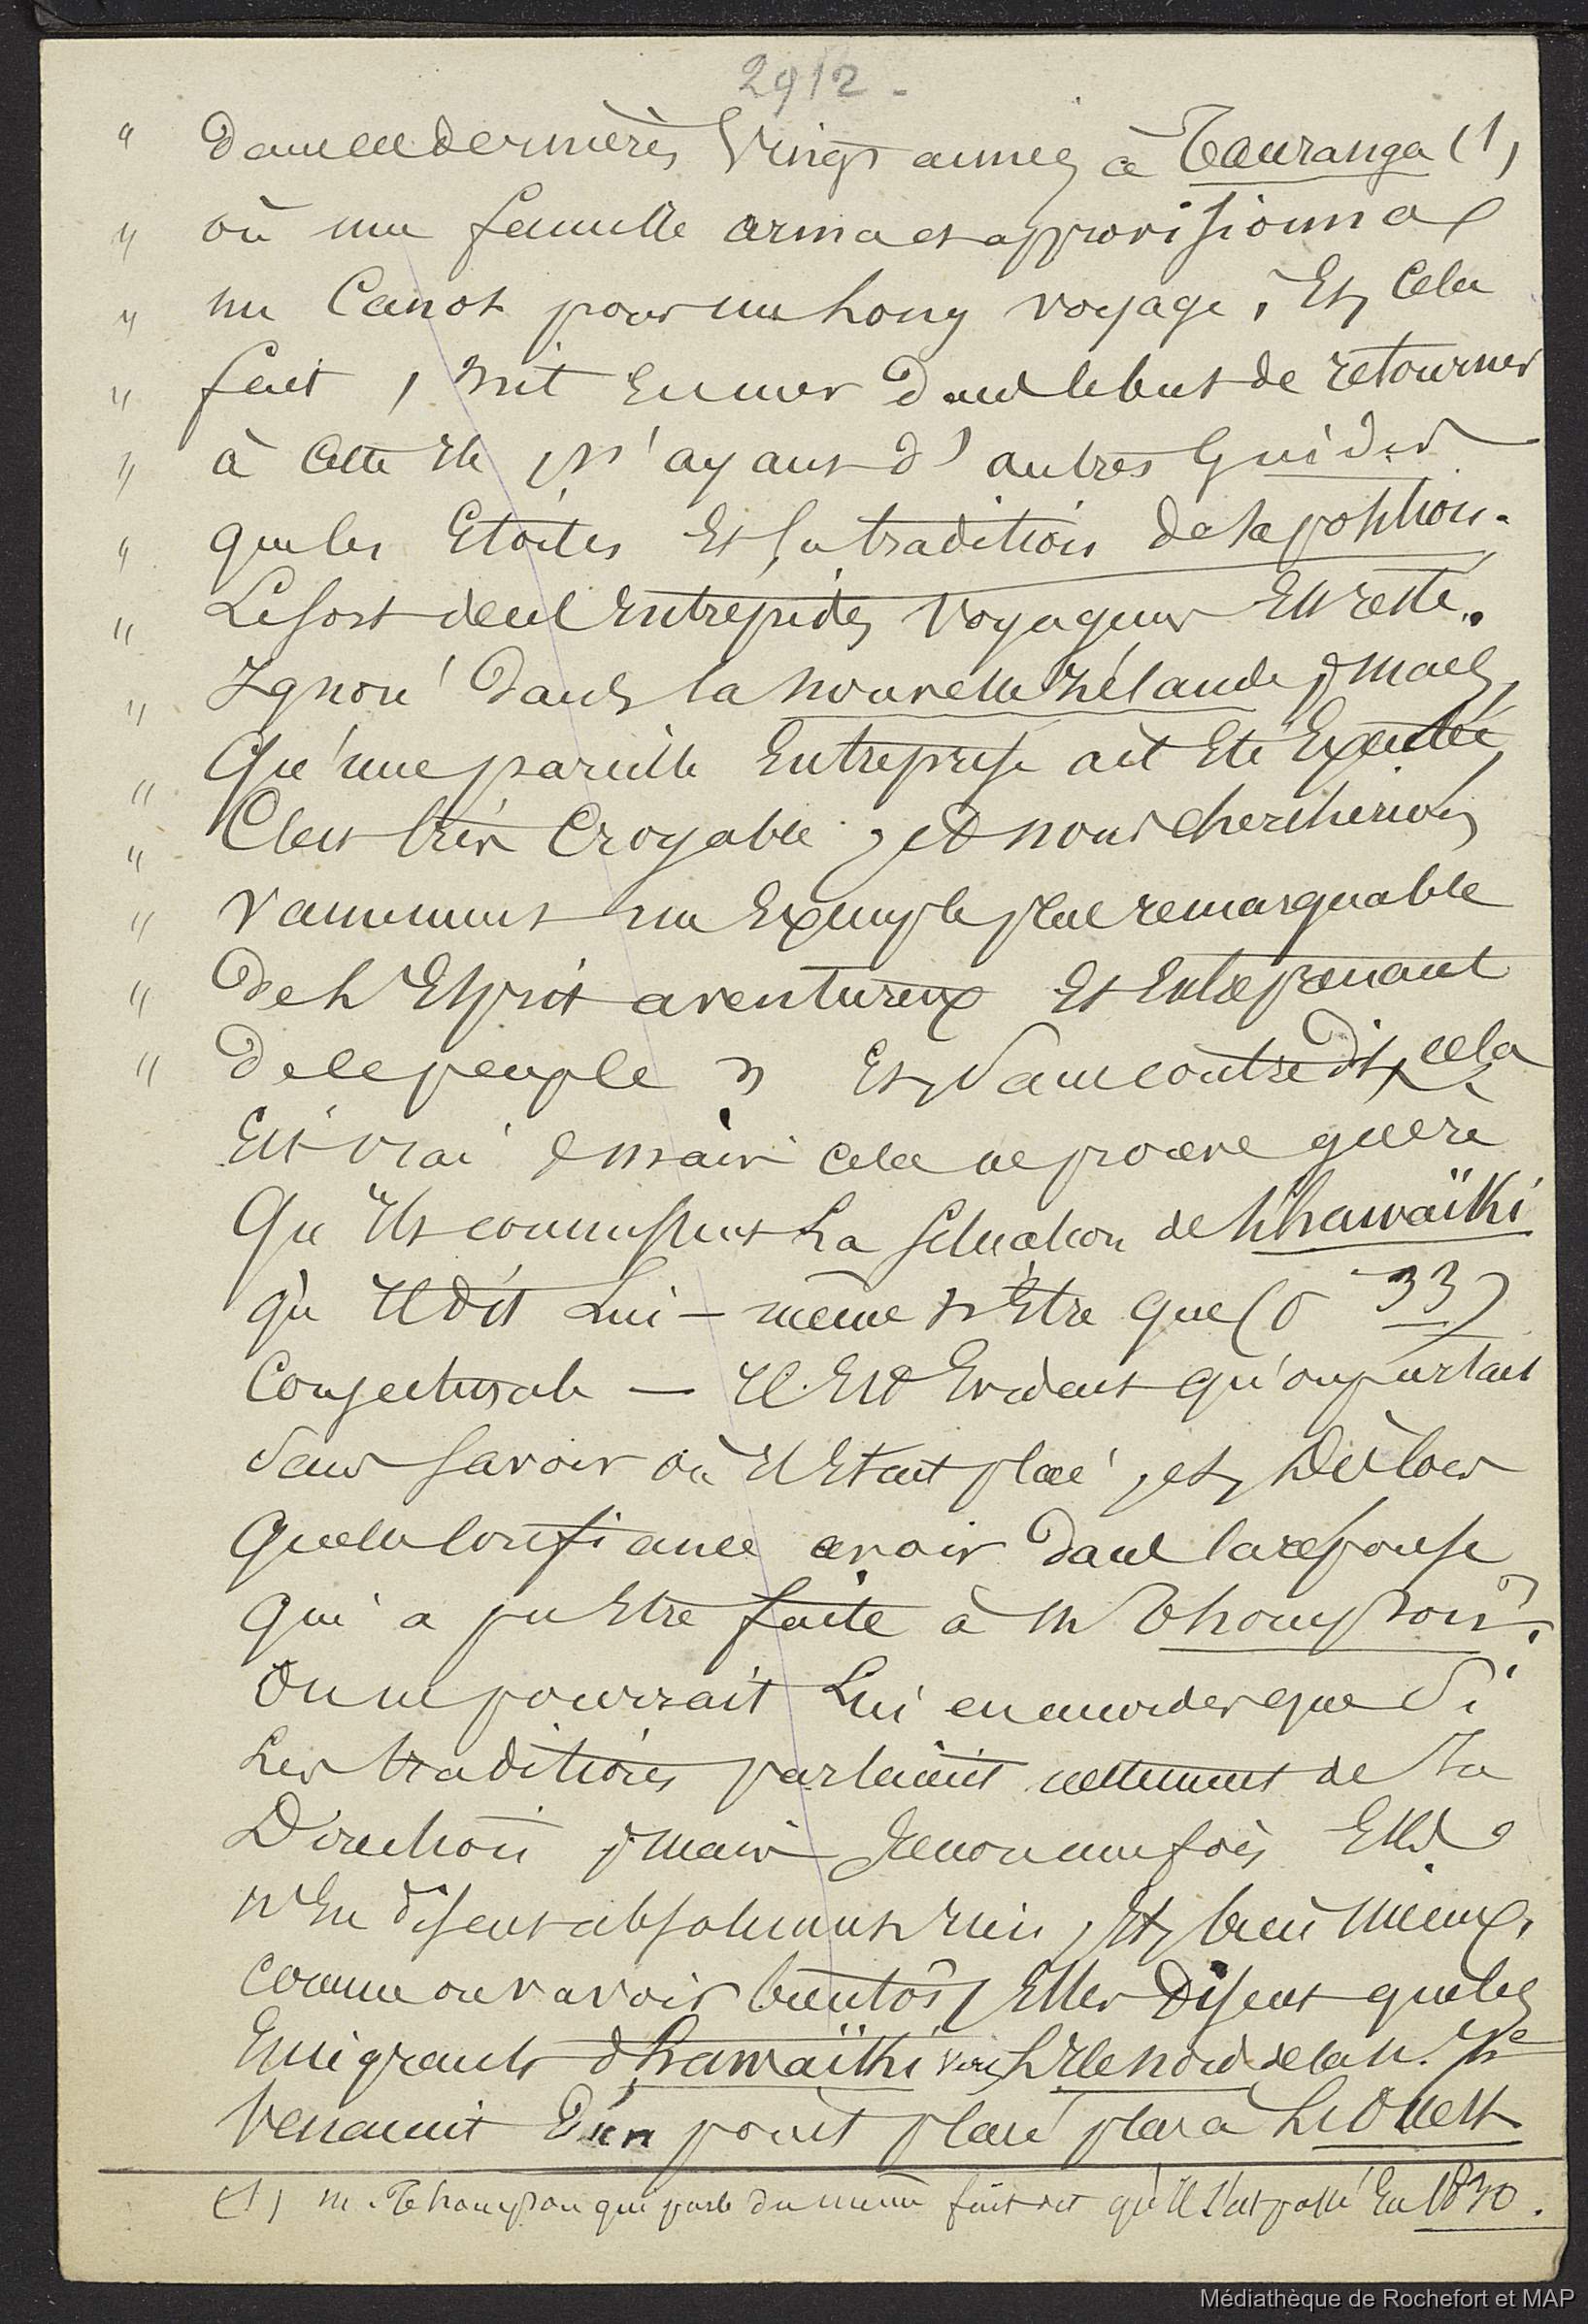 2912 -
" dans ces dernières Vingt années à Tauranga (1)
" où une famille arma et approvisionna
" un Canot pour un Long voyage, Et, Cela
" fait, mit en mer dans le but de retourner
" à Cette Ile, n'ayant d'autres Guides
" que les Etoiles Et la tradition de sa position.
" Le sort de ces Entrepides Voyageurs Est resté
" Ignoré dans la nouvelle Zélande, mais,
" Qu'une pareille Entreprise ait Eté Exécutée,
" C'est très Croyable, et nous chercherions
" vainement un Exemple plus remarquable
" de L'Esprit aventureux Et Entreprenant
" de ce peuple " Et, Sans contredit, cela
Est vrai, mais cela ne prouve guère
Qu'Ils connussent La situation de L'hawaïki
qu'Il dit Lui-même n'Etre que (p 33)
Conjecturale — Il Est Evident qu'on partait
Sans savoir où Il Etait placé, et, Dès lors
Quelle confiance avoir dans la réponse
qui a pu Etre faite à M Thompson?
On ne pourrait Lui en accorder que Si
Les traditions parlaient nettement de Sa
Direction, mais Encore une fois Elles
n'En disent absolument rien, Et, bien mieux,
comme on va voir bientôt, Elles Disent que les
Emigrants d'hawaïki vers L'Ile nord de la N. Zde
Venaient D'un point placé plus à L'Ouest
(1) M. Thompson qui parle du même fait dit qu'Il s'est passé En 1830.
Médiathèque de Rochefort et MAP